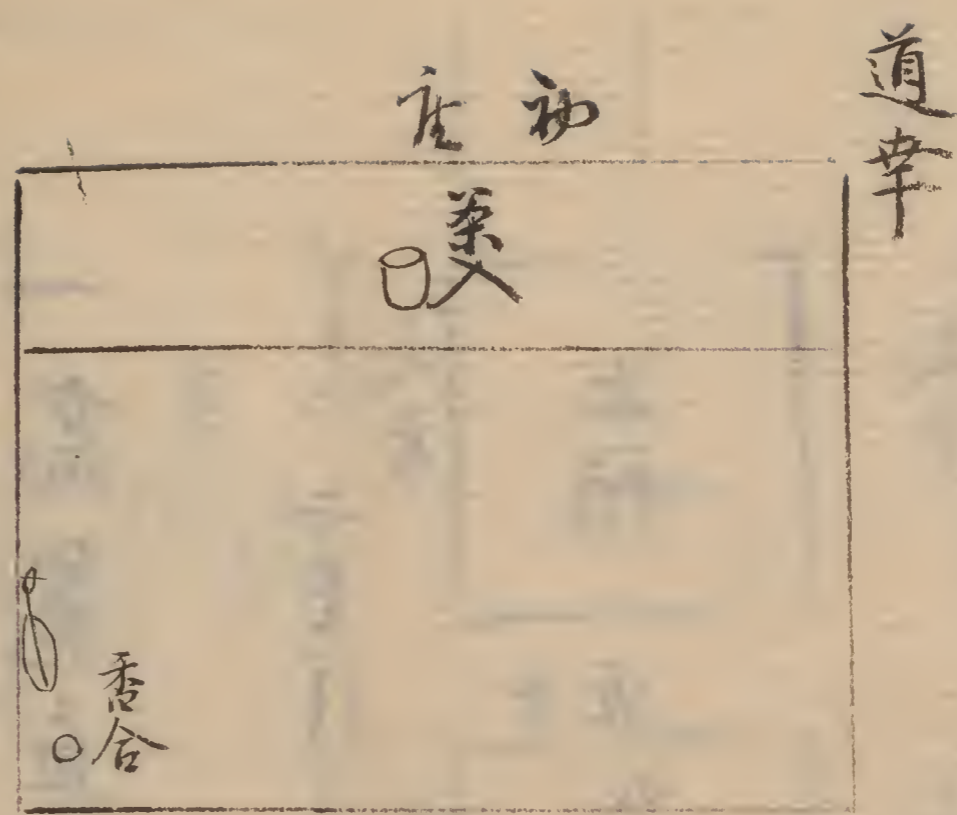 道幸
初座
茶入
香合